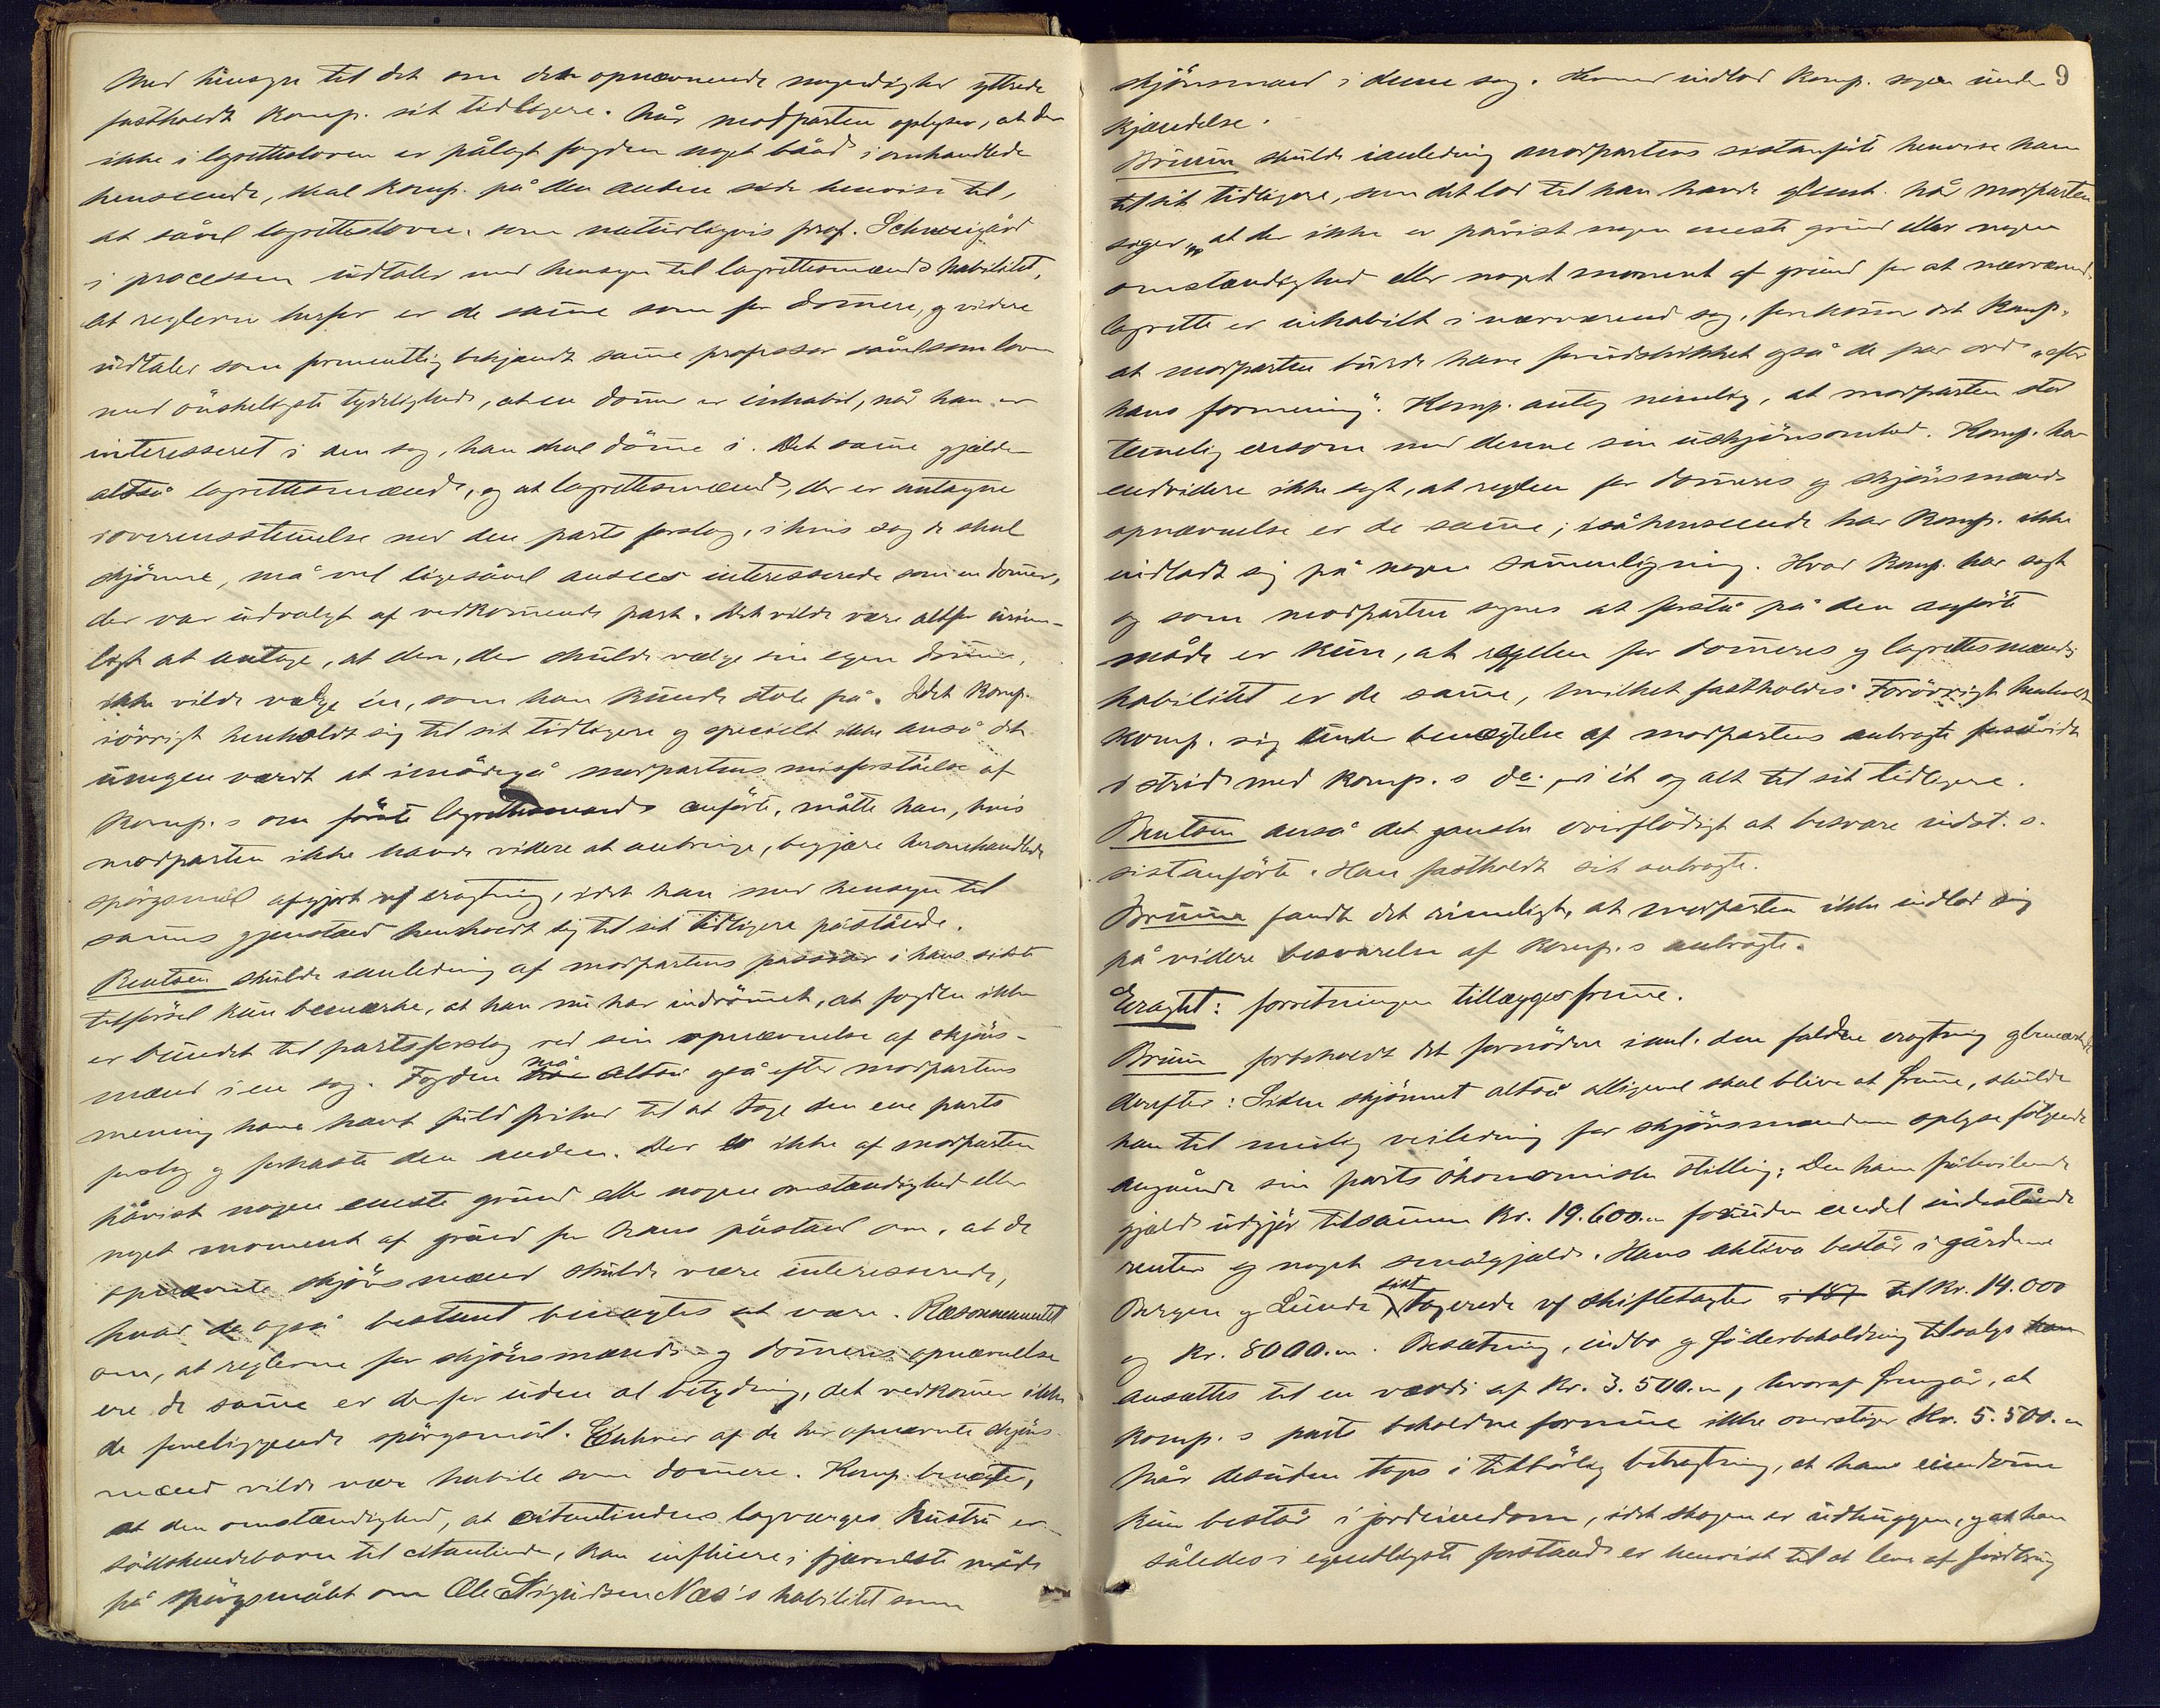 Med hensyn til det om den opnævnende myndighed yttrede
fastholdt komp. sit tidligere. Når modparten oplyser, at der
ikke i lagretteloven er pålagt fogden noget bånd i omhandlede
henseende, skal komp. på den anden side henvise til,
at såvel lagretteloven, som naturligvis prof. Schweigård
i processen udtaler med hensyn til lagrettemænds habilitet,
at reglerne herfor er de samme som for dommere, og videre
udtaler som formentlig bekjendt samme professor såvelsom loven
med önskeligste tydelighed, at en dommer er inhabil, når han er
interesseret i den sag, han skal dömme i. Det samme gjælder
altså lagrettesmænd, og at lagrettesmænd, der er antagne
i overensstemmelse med den parts forslag, i hvis sag de skal
skjönne, må vel ligesåvel ansees interesserede som en dommer,
der var udvalgt af vedkommende part. Det vilde være altfor urime-
ligt at antage, at den, der skulde vælge sin egen dommer,
ikke vilde vælge én, som han kunde stole på. Idet komp.
iövrigt henholdt sig til sit tidligere og specielt ikke anså det
umagen værdt at imödegå modpartens misforståelse af
komp.s om förste lagrettesmænds anförte, måtte han, hvis
modparten ikke havde videre at anbringe, begjære heromhandlede
spörgsmål afgjort ved eragtning, idet han med hensyn til
sammes gjenstand henholdt sig til sit tidligere påstående.
Bentsen skulde i anledning af modpartens passiar i hans sidste
tilförsel kun bemærke, at han nu har indrömmet, at fogden ikke
er bundet til partsforslag ved sin opnævnelse af skjöns-
mænd i en sag. Fogden må altså også efter modpartens
mening have havt fuld frihed til at tage den ene parts
forslag og forkaste den anden. Der er ikke af modparten
påvist nogen eneste grund eller nogen omstændighed eller
noget moment af grund for hans påstand om, at de
opnævnte skjönsmænd skulde være interesserede,
hvad de også bestemt benægtes at være. Ræsonnementet
om, at reglerne for skjönsmænds og dommeres opnævnelse
ere de samme er derfor uden al betydning, det vedkommer ikke
de foreliggende spörgsmål. Enhver af de her opnævnte skjöns-
mænd vilde være habile som dommere. Komp. benægter,
at den omstændighed, at citantindens lagværges hustru er
södskendebarn til citantinden, kan influere i fjerneste måde
på spörgsmålet om Ole Sigurdsen Næs's habilitet som
9
skjönsmand i denne sag. Hermed indlod komp. sagen under
kjendelse.
Brunn skulde i anledning modpartens sistanförte henvise ham
til sit tidligere, som det lod til han havde glemt. Når modparten
siger, "at der ikke er påvist nogen eneste grund eller nogen
omstændighed eller noget moment af grund for at nærværende
lagrette er inhabilt i nærværende sag, forekommer det komp.
at modparten burde have forudskikket også de par ord "efter
hans formening". Komp. antog nemlig, at modparten stod
temmelig ensom med denne sin uskjönsomhed. Komp. har
endvidere ikke sagt, at reglen for dommeres og skjönsmænds
opnævnelse er de samme; i så henseende har komp. ikke
indladt sig på nogen sammenligning. Hvad komp. har sagt
og som modparten synes at forstå på den anförte
måde er kun, at reglen for dommeres og lagrettesmænds
habilitet er de samme, hvilket fastholdes. Forövrigt henholdt
komp. sig under benægtelse af modpartens anbragte forsåvidt
i strid med komp.s do., i ét og alt til sit tidligere.
Bentsen anså det ganske overflödigt at besvare indst.s.
sistanförte. Han fastholdt sit anbragte.
Brunn fandt det rimeligt, at modparten ikke indlod sig
på videre besvarelse af komp.s anbragte.
Eragtet: forretningen tillægges fremme.
Brunn forbeholdt det fornödne i anl. den faldne eragtning og bemærkede
derefter: Siden skjönnet altså alligevel skal blive at fremme, skulde
han til mulig veiledning for skjönsmændene oplyse fölgende
angående sin parts ökonomiske stilling: Den ham påhvilende
gjæld udgjör tilsammen Kr. 19.600.00 foruden endel indestående
renter og noget smågjæld. Hans aktiva består i gårdene
Bergen og Lunde sidst tagerede ved skiftetagter i 187 til Kr. 14.000
og Kr. 8000.00. Besætning, indbo og föderbeholdning tilsalgs kan
ansættes til en værdi af Kr. 3.500.00, hvoraf fremgår, at
komp.s parts beholdne formue ikke overstiger Kr. 5.500.00
Når desuden tages i tilbörlig betragtning, at hans eiendomme
kun består i jordeiendom, idet skogen er udhuggen, og at han
således i egentligste forstand er henvist til at leve af jordbrug